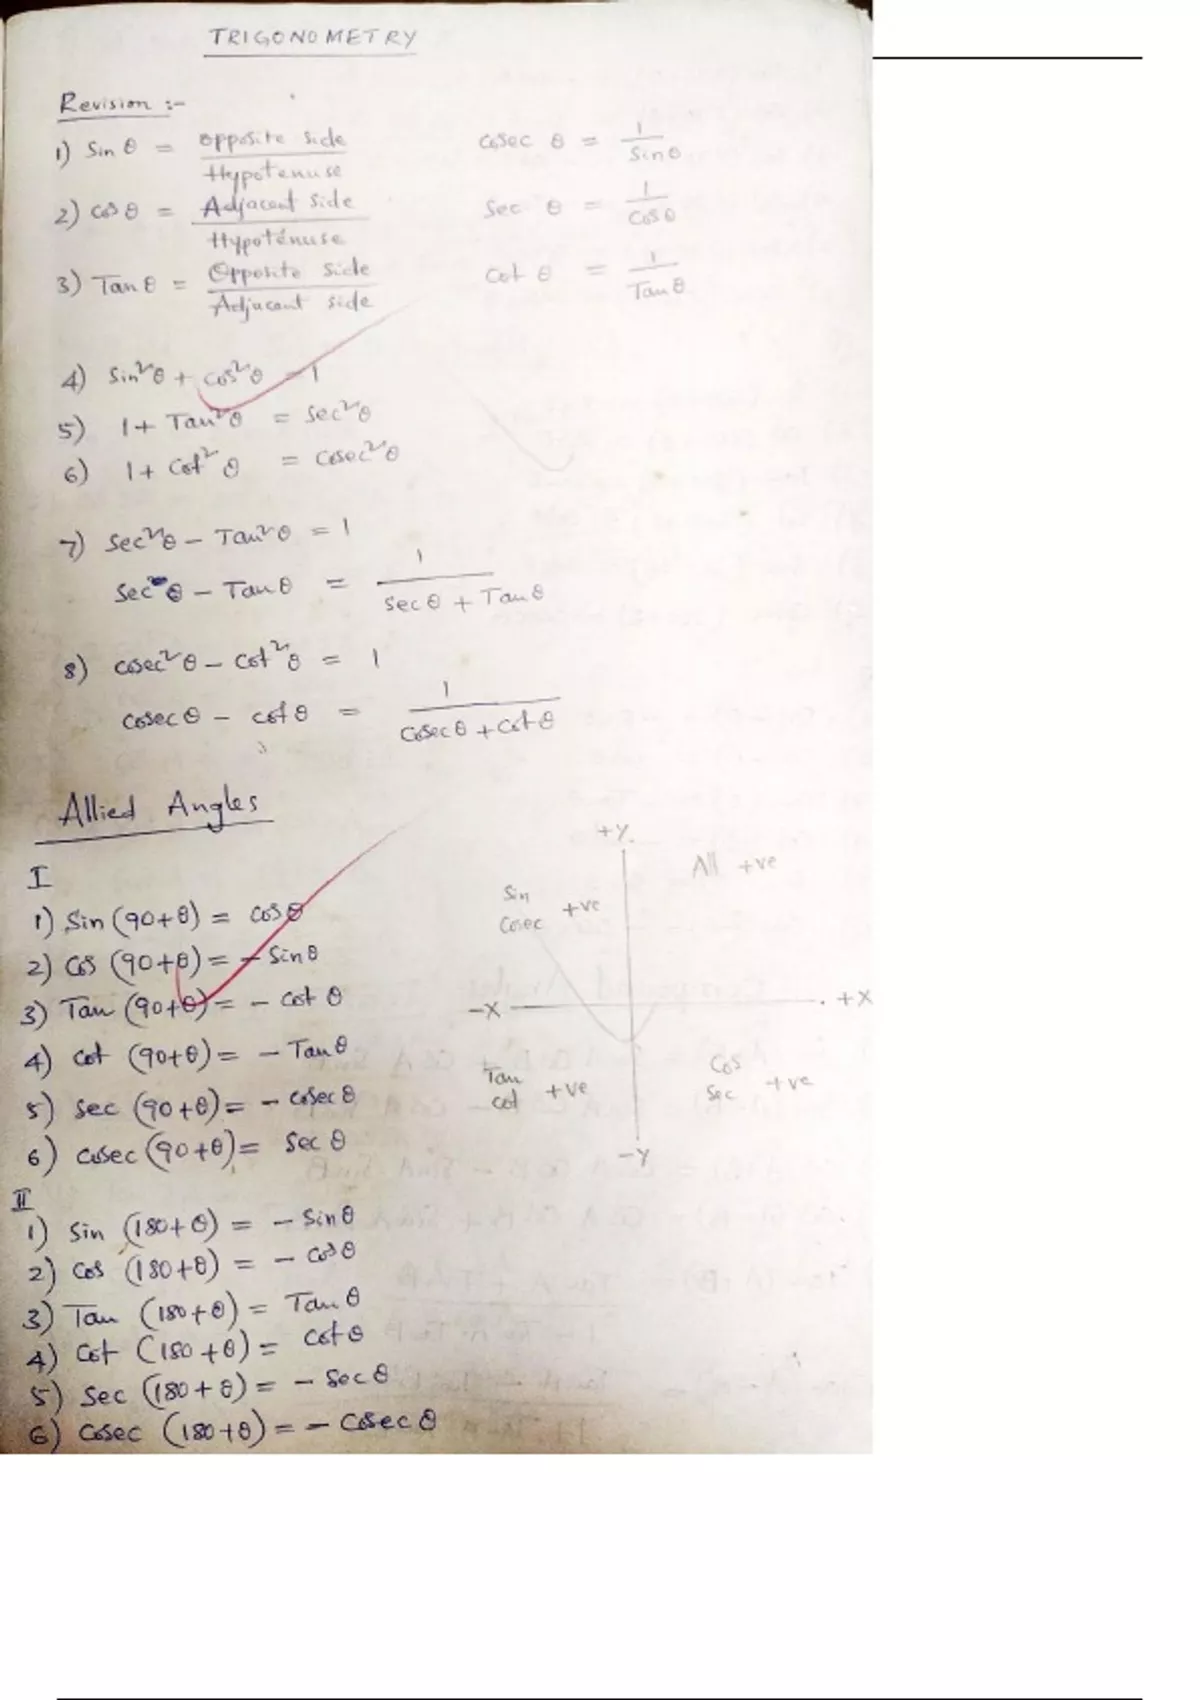 TRIGONOMETRY
Revision :-
1) Sin θ = opposite side / Hypotenuse    cosec θ = 1 / Sin θ
2) Cos θ = Adjacent side / Hypotenuse    Sec θ = 1 / Cos θ
3) Tan θ = Opposite side / Adjacent side    Cot θ = 1 / Tan θ
4) Sin²θ + Cos²θ = 1
5) 1 + Tan²θ = Sec²θ
6) 1 + Cot²θ = Cosec²θ
7) Sec²θ - Tan²θ = 1
Sec θ - Tan θ = 1 / Sec θ + Tan θ
8) Cosec²θ - Cot²θ = 1
Cosec θ - Cot θ = 1 / Cosec θ + Cot θ
Allied Angles
I
1) Sin (90+θ) = Cos θ
2) Cos (90+θ) = - Sin θ
3) Tan (90+θ) = - Cot θ
4) Cot (90+θ) = - Tan θ
5) Sec (90+θ) = - Cosec θ
6) Cosec (90+θ) = Sec θ
+Y
All +ve
Sin
Cosec +ve
-X
+X
Tan
Cot +ve
Cos
Sec +ve
-Y
II
1) Sin (180+θ) = - Sin θ
2) Cos (180+θ) = - Cos θ
3) Tan (180+θ) = Tan θ
4) Cot (180+θ) = Cot θ
5) Sec (180+θ) = - Sec θ
6) Cosec (180+θ) = - Cosec θ